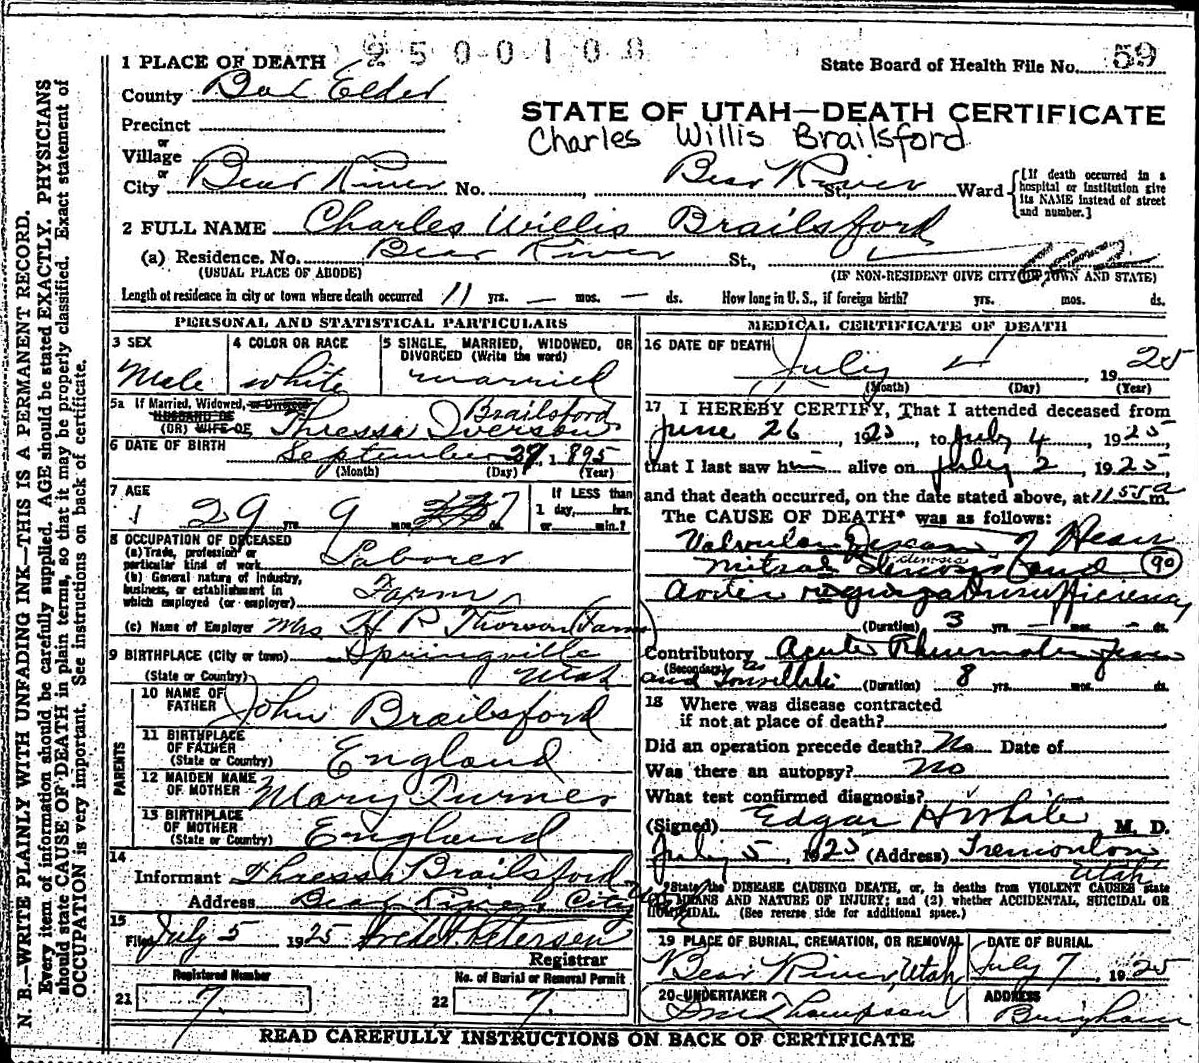 2500108
1 PLACE OF DEATH
State Board of Health File No. 59
County Box Elder
STATE OF UTAH—DEATH CERTIFICATE
Precinct
Charles Willis Brailsford
or
Village
or
City Bear River No. , Bear River St., Ward
[If death occurred in a hospital or institution give its NAME instead of street and number.]
2 FULL NAME Charles Willis Brailsford
(a) Residence. No. Bear River St.,
(USUAL PLACE OF ABODE) (IF NON-RESIDENT GIVE CITY OR TOWN AND STATE)
Length of residence in city or town where death occurred 11 yrs. — mos. — ds. How long in U. S., if foreign birth? yrs. mos. ds.
PERSONAL AND STATISTICAL PARTICULARS
3 SEX
Male
4 COLOR OR RACE
white
5 SINGLE, MARRIED, WIDOWED, OR DIVORCED (Write the word)
married
5a If Married, Widowed, or Divorced
HUSBAND OF
(OR) WIFE OF Thressa Iverson Brailsford
6 DATE OF BIRTH September 27, 1895
(Month) (Day) (Year)
7 AGE
29 yrs. 9 mos. 7 ds.
If LESS than
1 day, hrs.
or min.?
8 OCCUPATION OF DECEASED
(a) Trade, profession or particular kind of work Laborer
(b) General nature of industry, business, or establishment in which employed (or employer) Farm
(c) Name of Employer Mrs H P Thorson Farm
9 BIRTHPLACE (City or town) Springville
(State or Country) Utah
PARENTS
10 NAME OF FATHER John Brailsford
11 BIRTHPLACE OF FATHER
(State or Country) England
12 MAIDEN NAME OF MOTHER Mary Turner
13 BIRTHPLACE OF MOTHER
(State or Country) England
14
Informant Thressa Brailsford
Address Bear River City
15
Filed July 5 1925
Registrar
Registered Number
No. of Burial or Removal Permit
21 7.
22 7.
MEDICAL CERTIFICATE OF DEATH
16 DATE OF DEATH
July 4, 1925
(Month) (Day) (Year)
17 I HEREBY CERTIFY, That I attended deceased from
June 26, 1925, to July 4, 1925,
that I last saw him alive on July 2, 1925,
and that death occurred, on the date stated above, at 11 55 a m.
The CAUSE OF DEATH* was as follows:
Valvular Disease of Heart
Mitral Stenosis and stenosis 90
Aortic insufficiency
(Duration) 3 yrs. — mos. - ds.
Contributory Acute Rheumatic Fever
(Secondary) and Tonsillitis (Duration) 8 yrs. mos. ds.
18 Where was disease contracted
if not at place of death?
Did an operation precede death? No Date of
Was there an autopsy? No
What test confirmed diagnosis?
(Signed) Edgar H White M. D.
July 5, 1925 (Address) Tremonton
Utah
*State the DISEASE CAUSING DEATH, or, in deaths from VIOLENT CAUSES state
(1) MEANS AND NATURE OF INJURY; and (2) whether ACCIDENTAL, SUICIDAL OR
HOMICIDAL. (See reverse side for additional space.)
19 PLACE OF BURIAL, CREMATION, OR REMOVAL
Bear River, Utah
DATE OF BURIAL
July 7, 1925
20 UNDERTAKER
Thompson
ADDRESS
Brigham
READ CAREFULLY INSTRUCTIONS ON BACK OF CERTIFICATE
N. B.—WRITE PLAINLY WITH UNFADING INK—THIS IS A PERMANENT RECORD.
Every item of information should be carefully supplied. AGE should be stated EXACTLY. PHYSICIANS
should state CAUSE OF DEATH in plain terms, so that it may be properly classified. Exact statement of
OCCUPATION is very important. See instructions on back of certificate.